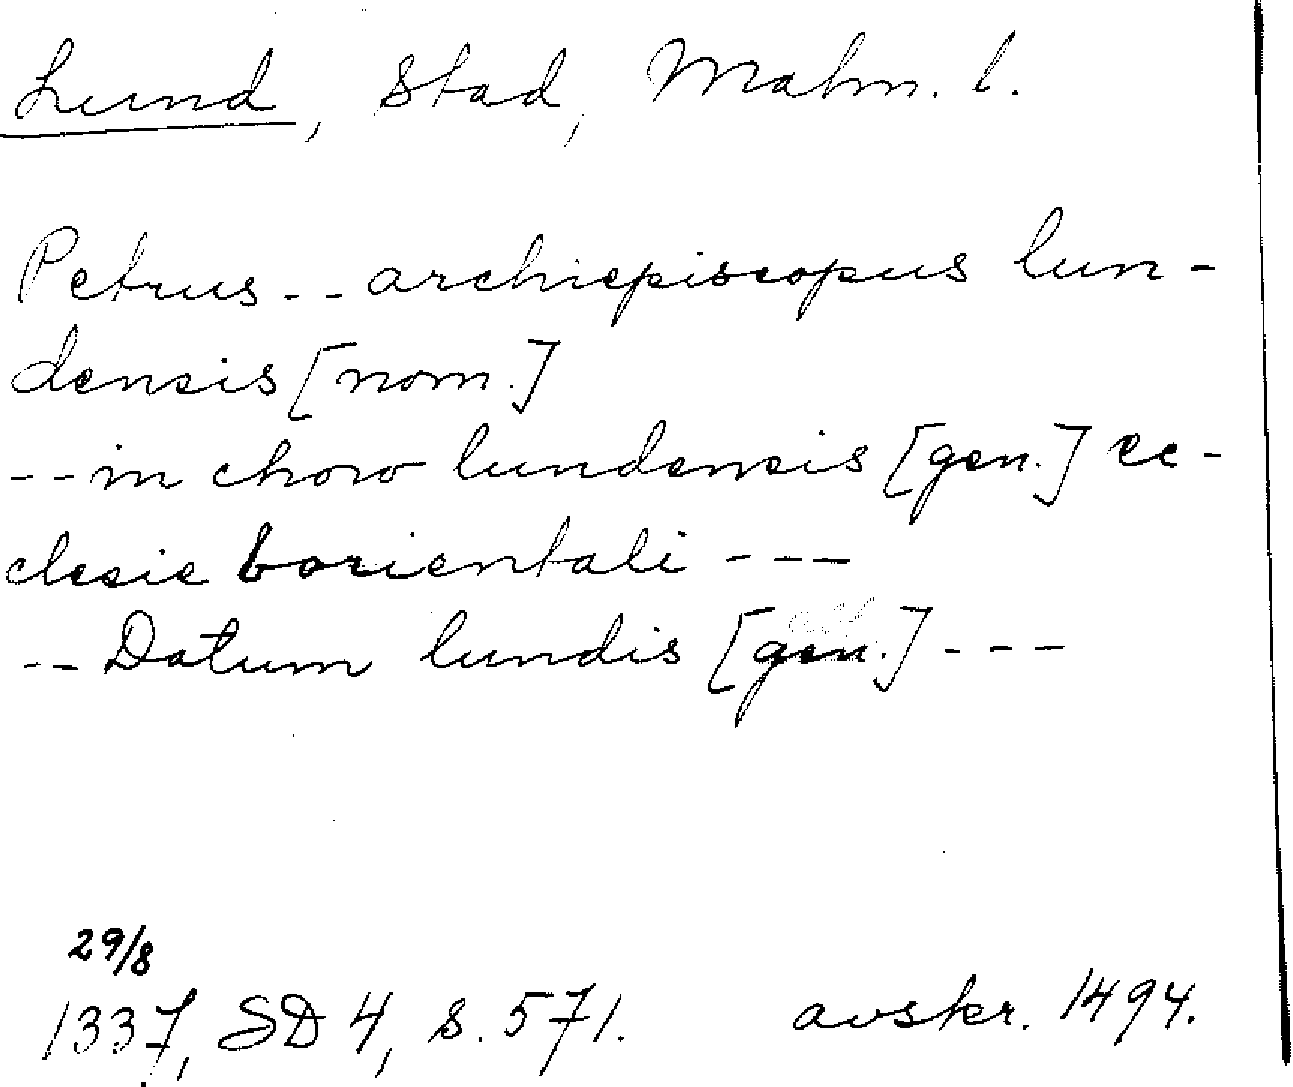 Lund, Stad, Malm. l.
Petrus -- archiepiscopus lun-
densis [nom.]
-- in choro lundensis [gen.] ec-
clesie borientali ---
-- Datum lundis [gen.] ---
29/8
1337, SD 4, s. 571. avskr. 1494.